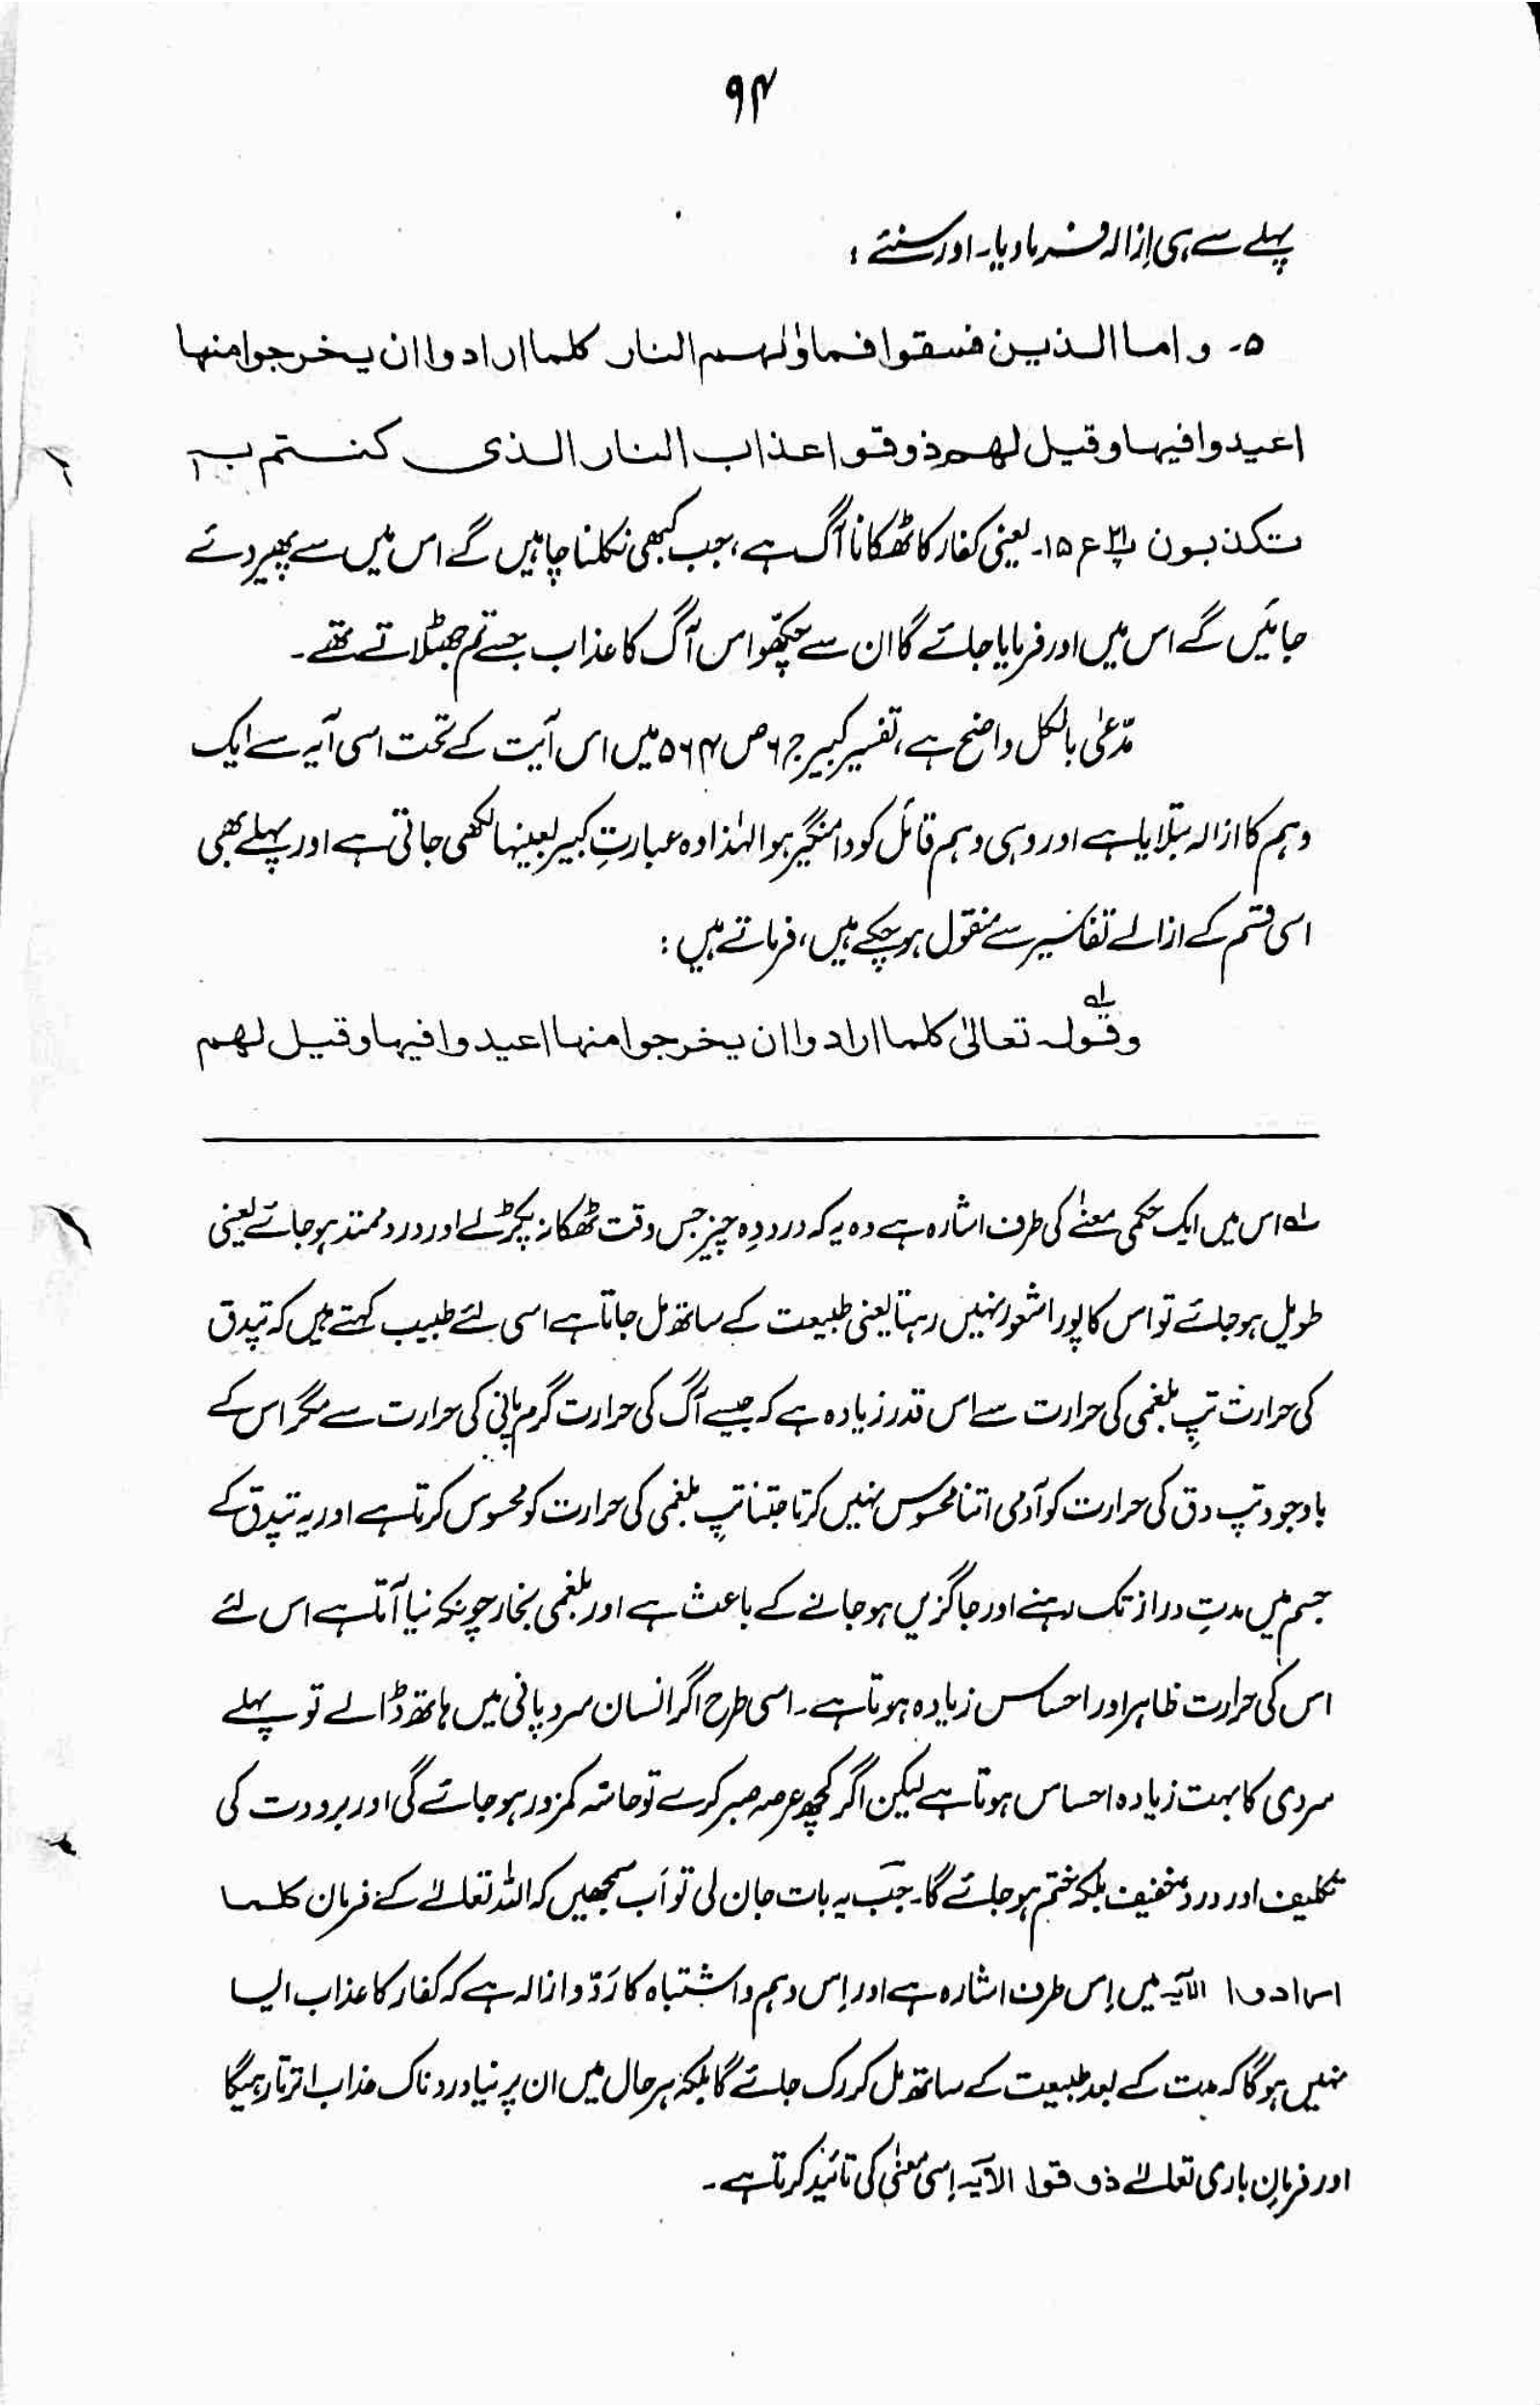 ۹۴
پہلے سے ہی اِزالہ فرما دیا۔ اور سنئے :
۵۔ و اما الذین فسقوا فماوٰلہم النار کلما ارادوا ان یخرجوا منہا
اعیدوا فیہا و قیل لہم ذوقوا عذاب النار الذی کنتم بہٖ
تکذبون پ۲۱ ع ۱۵۔ یعنی کفار کا ٹھکانا آگ ہے، جب کبھی نکلنا چاہیں گے اس میں سے پھیر دئے
جائیں گے اس میں اور فرمایا جائے گا ان سے چکھّو اس آگ کا عذاب جسے تم جھٹلاتے تھے۔
مدّعیٰ بالکل واضح ہے، تفسیر کبیر ج ۶ ص ۵۶۴ میں اس آیت کے تحت اسی آیہ سے ایک
وہم کا ازالہ بتلایا ہے اور وہی وہم قائل کو دامنگیر ہوا لہٰذا وہ عبارتِ کبیر بعینہا لکھی جاتی ہے اور پہلے بھی
اسی قسم کے ازالے تفاسیر سے منقول ہو چکے ہیں، فرماتے ہیں :
وقولہ تعالیٰ کلما ارادوا ان یخرجوا منہا اعیدوا فیہا و قیل لہم
لے اس میں ایک حکمی معنےٰ کی طرف اشارہ ہے وہ یہ کہ درد دِہ چیز جس وقت ٹھکانہ پکڑ لے اور درد ممتد ہو جائے یعنی
طویل ہو جائے تو اس کا پورا شعور نہیں رہتا یعنی طبیعت کے ساتھ مل جاتا ہے اسی لئے طبیب کہتے ہیں کہ تپدق
کی حرارت تپِ بلغمی کی حرارت سے اس قدر زیادہ ہے کہ جیسے آگ کی حرارت گرم پانی کی حرارت سے مگر اس کے
باوجود تپ دق کی حرارت کو آدمی اتنا محسوس نہیں کرتا جتنا تپِ بلغمی کی حرارت کو محسوس کرتا ہے اور یہ تپدق کے
جسم میں مدتِ دراز تک رہنے اور جاگزیں ہو جانے کے باعث ہے اور بلغمی بخار چونکہ نیا آتا ہے اس لئے
اس کی حرارت ظاہر اور احساس زیادہ ہوتا ہے۔ اسی طرح اگر انسان سرد پانی میں ہاتھ ڈالے تو پہلے
سردی کا بہت زیادہ احساس ہوتا ہے لیکن اگر کچھ عرصہ صبر کرے تو حاسّہ کمزور ہو جائے گی اور برودت کی
تکلیف اور درد خفیف بلکہ ختم ہو جائے گا۔ جب یہ بات جان لی تو اَب سمجھیں کہ اللہ تعالےٰ کے فرمان کلما
ارادوا الآیہ میں اِس طرف اشارہ ہے اور اِس وہم و اشتباہ کا رَدّ و ازالہ ہے کہ کفار کا عذاب ایسا
نہیں ہو گا کہ مدت کے بعد طبیعت کے ساتھ مل کر رک جائے گا بلکہ ہر حال میں ان پر نیا دردناک عذاب اترتا رہیگا
اور فرمانِ باری تعالےٰ ذوقوا الآیہ اِسی معنیٰ کی تائید کرتا ہے۔